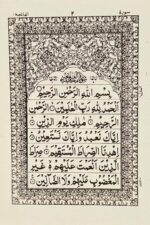 سورة ٢ الفاتحة
بِسْمِ اللهِ الرَّحْمٰنِ الرَّحِيْمِ
اَلْحَمْدُ لِلّٰهِ رَبِّ الْعٰلَمِيْنَ الرَّحْمٰنِ
الرَّحِيْمِ مٰلِكِ يَوْمِ الدِّيْنِ
اِيَّاكَ نَعْبُدُ وَاِيَّاكَ نَسْتَعِيْنُ
اِهْدِنَا الصِّرَاطَ الْمُسْتَقِيْمَ صِرَاطَ
الَّذِيْنَ اَنْعَمْتَ عَلَيْهِمْ غَيْرِ
الْمَغْضُوْبِ عَلَيْهِمْ وَلَا الضَّآلِّيْنَ